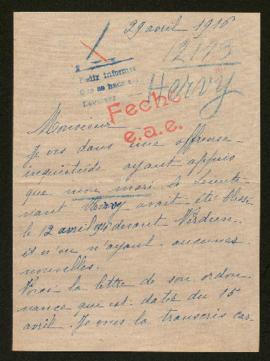 29 avril 1916
12173
Pedir informes
Hervy
Fecho
e.a.e.
Monsieur
Je vis dans une affreuse
inquiétude ayant appris
que mon mari le Lieute-
nant Hervy avait été blessé
le 12 avril devant Verdun
et n'en ayant aucunes
nouvelles.
Voici la lettre de son ordon-
nance qui est datée du 15
avril. Je vous la transcris car